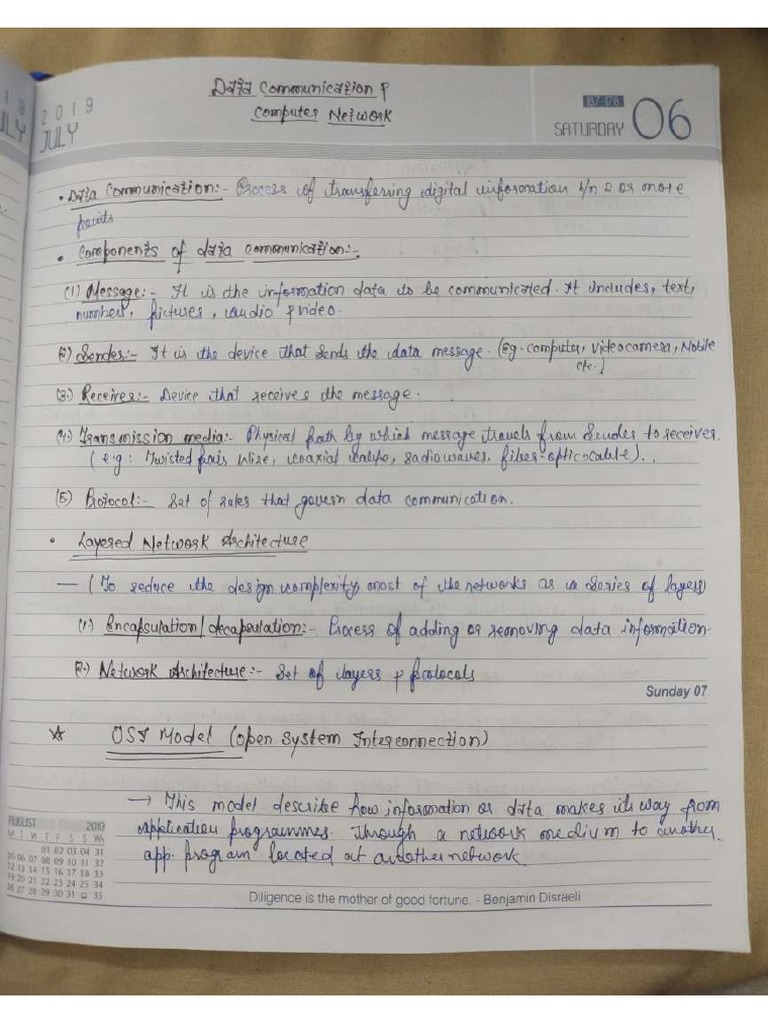 Data Communication &
Computer Network
2019
JULY
187-178
SATURDAY 06
• Data Communication:- Process of transferring digital information b/n 2 or more
points
• Components of data communication:-
(1) Message:- It is the information data to be communicated. It includes, text,
numbers, pictures, audio & video.
(2) Sender:- It is the device that sends the data message. (Eg. computer, videocamera, Mobile
etc.)
(3.) Receiver:- Device that receives the message.
(4.) Transmission media:- Physical path by which message travels from sender to receiver.
(e.g: Twisted pair wire, coaxial cable, radiowaves, fiber-optic cable).
(5) Protocol:- Set of rules that govern data communication.
• Layered Network Architecture
— (To reduce the design complexity, most of the networks as in series of layers)
(1) Encapsulation/decapsulation:- Process of adding or removing data information.
(2.) Network Architecture:- Set of layers & protocols
Sunday 07
☆ OSI Model (Open System Interconnection)
→ This model describe how information or data makes its way from
application programmes through a network medium to another
app. program located at another network
AUGUST 2019
M T W T F S S Wk
01 02 03 04 31
05 06 07 08 09 10 11 32
12 13 14 15 16 17 18 33
19 20 21 22 23 24 25 34
26 27 28 29 30 31 35
Diligence is the mother of good fortune. - Benjamin Disraeli